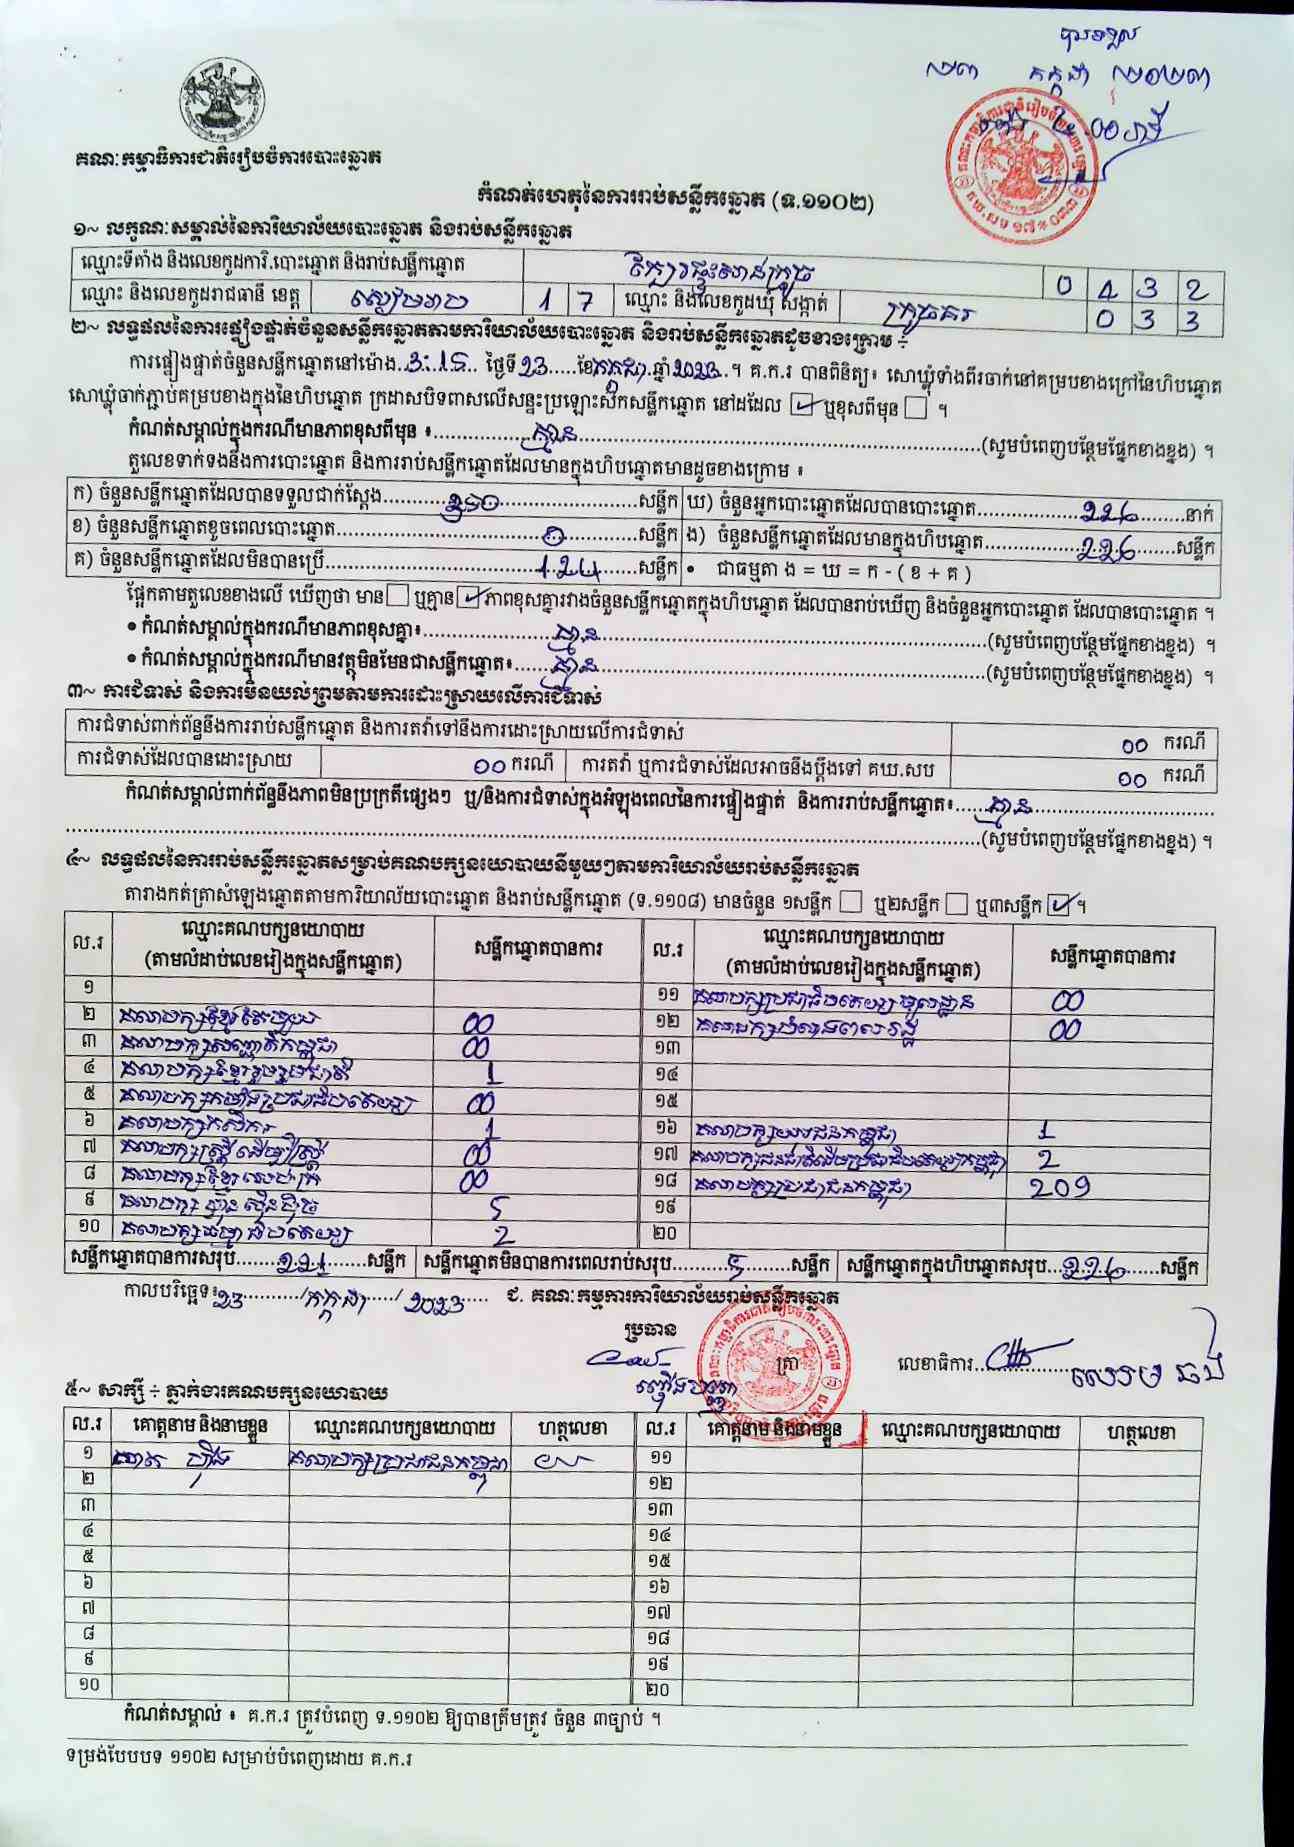 ២៣ កក្កដា ២០២៣
គណៈកម្មាធិការជាតិរៀបចំការបោះឆ្នោត
កំណត់ហេតុនៃការរាប់សន្លឹកឆ្នោត (ទ.១១០២)
១~ លក្ខណៈសម្គាល់នៃការិយាល័យបោះឆ្នោត និងរាប់សន្លឹកឆ្នោត
ឈ្មោះទីតាំង និងលេខកូដការិ.បោះឆ្នោត និងរាប់សន្លឹកឆ្នោត 0 4 3 2
ឈ្មោះ និងលេខកូដរាជធានី ខេត្ត សៀមរាប 1 7 ឈ្មោះ និងលេខកូដឃុំ សង្កាត់ 0 3 3
២~ លទ្ធផលនៃការផ្ទៀងផ្ទាត់ចំនួនសន្លឹកឆ្នោតតាមការិយាល័យបោះឆ្នោត និងរាប់សន្លឹកឆ្នោតដូចខាងក្រោម ÷
ការផ្ទៀងផ្ទាត់ចំនួនសន្លឹកឆ្នោតនៅម៉ោង 3:15 ថ្ងៃទី 23 ខែ កក្កដា ឆ្នាំ 2023 ។ គ.ក.រ បានពិនិត្យ៖ សោឃ្លុំទាំងពីរចាក់នៅគម្របខាងក្រៅនៃហិបឆ្នោត
សោឃ្លុំចាក់ភ្ជាប់គម្របខាងក្នុងនៃហិបឆ្នោត ក្រដាសបិទពាសលើសន្ទះប្រឡោះស៊កសន្លឹកឆ្នោត នៅដដែល ☑ ឬខុសពីមុន ☐ ។
កំណត់សម្គាល់ក្នុងករណីមានភាពខុសពីមុន ៖ គ្មាន (សូមបំពេញបន្ថែមផ្នែកខាងខ្នង) ។
តួលេខទាក់ទងនឹងការបោះឆ្នោត និងការរាប់សន្លឹកឆ្នោតដែលមានក្នុងហិបឆ្នោតមានដូចខាងក្រោម ៖
ក) ចំនួនសន្លឹកឆ្នោតដែលបានទទួលជាក់ស្តែង 350 សន្លឹក ឃ) ចំនួនអ្នកបោះឆ្នោតដែលបានបោះឆ្នោត 226 នាក់
ខ) ចំនួនសន្លឹកឆ្នោតខូចពេលបោះឆ្នោត 0 សន្លឹក ង) ចំនួនសន្លឹកឆ្នោតដែលមានក្នុងហិបឆ្នោត 226 សន្លឹក
គ) ចំនួនសន្លឹកឆ្នោតដែលមិនបានប្រើ 124 សន្លឹក • ជាធម្មតា ង = ឃ = ក - ( ខ + គ )
ផ្អែកតាមតួលេខខាងលើ ឃើញថា មាន ☐ ឬគ្មាន ☑ ភាពខុសគ្នារវាងចំនួនសន្លឹកឆ្នោតក្នុងហិបឆ្នោត ដែលបានរាប់ឃើញ និងចំនួនអ្នកបោះឆ្នោត ដែលបានបោះឆ្នោត ។
• កំណត់សម្គាល់ក្នុងករណីមានភាពខុសគ្នា៖ គ្មាន (សូមបំពេញបន្ថែមផ្នែកខាងខ្នង) ។
• កំណត់សម្គាល់ក្នុងករណីមានវត្ថុមិនមែនជាសន្លឹកឆ្នោត៖ គ្មាន (សូមបំពេញបន្ថែមផ្នែកខាងខ្នង) ។
៣~ ការជំទាស់ និងការមិនយល់ព្រមតាមការដោះស្រាយលើការជំទាស់
ការជំទាស់ពាក់ព័ន្ធនឹងការរាប់សន្លឹកឆ្នោត និងការតវ៉ាទៅនឹងការដោះស្រាយលើការជំទាស់ 00 ករណី
ការជំទាស់ដែលបានដោះស្រាយ 00 ករណី ការតវ៉ា ឬការជំទាស់ដែលអាចនឹងប្តឹងទៅ គឃ.សប 00 ករណី
កំណត់សម្គាល់ពាក់ព័ន្ធនឹងភាពមិនប្រក្រតីផ្សេងៗ ឬ/និងការជំទាស់ក្នុងអំឡុងពេលនៃការផ្ទៀងផ្ទាត់ និងការរាប់សន្លឹកឆ្នោត៖ គ្មាន
(សូមបំពេញបន្ថែមផ្នែកខាងខ្នង) ។
៤~ លទ្ធផលនៃការរាប់សន្លឹកឆ្នោតសម្រាប់គណបក្សនយោបាយនីមួយៗតាមការិយាល័យរាប់សន្លឹកឆ្នោត
តារាងកត់ត្រាសំឡេងឆ្នោតតាមការិយាល័យបោះឆ្នោត និងរាប់សន្លឹកឆ្នោត (ទ.១១០៨) មានចំនួន ១សន្លឹក ☐ ឬ២សន្លឹក ☐ ឬ៣សន្លឹក ☑ ។
ល.រ ឈ្មោះគណបក្សនយោបាយ (តាមលំដាប់លេខរៀងក្នុងសន្លឹកឆ្នោត) សន្លឹកឆ្នោតបានការ ល.រ ឈ្មោះគណបក្សនយោបាយ (តាមលំដាប់លេខរៀងក្នុងសន្លឹកឆ្នោត) សន្លឹកឆ្នោតបានការ
១ ១១ គណបក្សប្រជាធិបតេយ្យមូលដ្ឋាន 00
២ គណបក្សខ្មែរតែមួយ 00 ១២ គណបក្សបំរុងពលរដ្ឋ 00
៣ គណបក្សសញ្ជាតិកម្ពុជា 00 ១៣
៤ គណបក្សខ្មែររួបរួមជាតិ 1 ១៤
៥ គណបក្សកម្លាំងប្រជាធិបតេយ្យ 00 ១៥
៦ គណបក្សកសិករ 1 ១៦ គណបក្សយុវជនកម្ពុជា 1
៧ គណបក្សស្ត្រីដើម្បីស្ត្រី 00 ១៧ គណបក្សជនជាតិដើមប្រជាធិបតេយ្យកម្ពុជា 2
៨ គណបក្សខ្មែរអភិរក្ស 00 ១៨ គណបក្សប្រជាជនកម្ពុជា 209
៩ គណបក្សហ៊្វុនស៊ិនប៉ិច 5 ១៩
១០ គណបក្សធម្មាធិបតេយ្យ 2 ២០
សន្លឹកឆ្នោតបានការសរុប 221 សន្លឹក សន្លឹកឆ្នោតមិនបានការពេលរាប់សរុប 5 សន្លឹក សន្លឹកឆ្នោតក្នុងហិបឆ្នោតសរុប 226 សន្លឹក
កាលបរិច្ឆេទ៖ 23 / កក្កដា / 2023 ជ. គណៈកម្មការការិយាល័យរាប់សន្លឹកឆ្នោត
ប្រធាន ត្រា លេខាធិការ
៥~ សាក្សី ÷ ភ្នាក់ងារគណបក្សនយោបាយ
ល.រ គោត្តនាម និងនាមខ្លួន ឈ្មោះគណបក្សនយោបាយ ហត្ថលេខា ល.រ គោត្តនាម និងនាមខ្លួន ឈ្មោះគណបក្សនយោបាយ ហត្ថលេខា
១ គណបក្សប្រជាជនកម្ពុជា ១១
២ ១២
៣ ១៣
៤ ១៤
៥ ១៥
៦ ១៦
៧ ១៧
៨ ១៨
៩ ១៩
១០ ២០
កំណត់សម្គាល់ ៖ គ.ក.រ ត្រូវបំពេញ ទ.១១០២ ឱ្យបានត្រឹមត្រូវ ចំនួន ៣ច្បាប់ ។
ទម្រង់បែបបទ ១១០២ សម្រាប់បំពេញដោយ គ.ក.រ